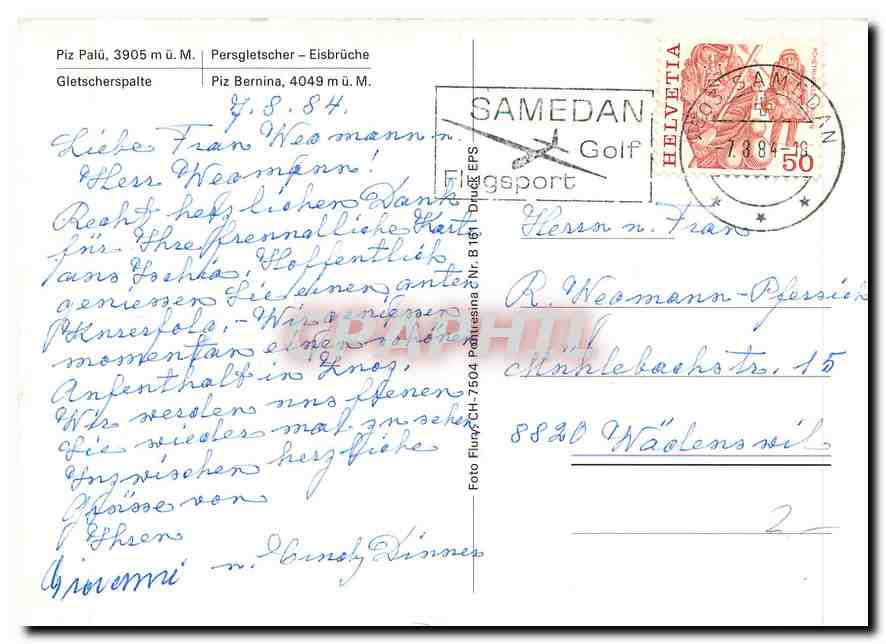 Piz Palü, 3905 m ü. M. | Persgletscher – Eisbrüche
Gletscherspalte | Piz Bernina, 4049 m ü. M.
7.8.84.
Liebe Frau Wegmann u.
Herr Wegmann!
Recht herzlichen Dank
für Ihre freundliche Karte
aus Ischia. Hoffentlich
geniessen Sie einen guten
Kurerfolg. – Wir geniessen
momentan einen schönen
Aufenthalt in Zuoz.
Wir werden uns freuen
Sie wieder mal zu sehen
Inzwischen herzliche
Grüsse von
Ihren
Giovanni u. Cindy Dinner
Foto Flury, CH-7504 Pontresina Nr. B 161 Druck EPS
SAMEDAN
Golf
Flugsport
HELVETIA
50
7503 SAMEDAN
–7.8.84–18
Herrn u. Frau
R. Wegmann-Pfersich
Mühlebachstr. 15
8820 Wädenswil
2.–